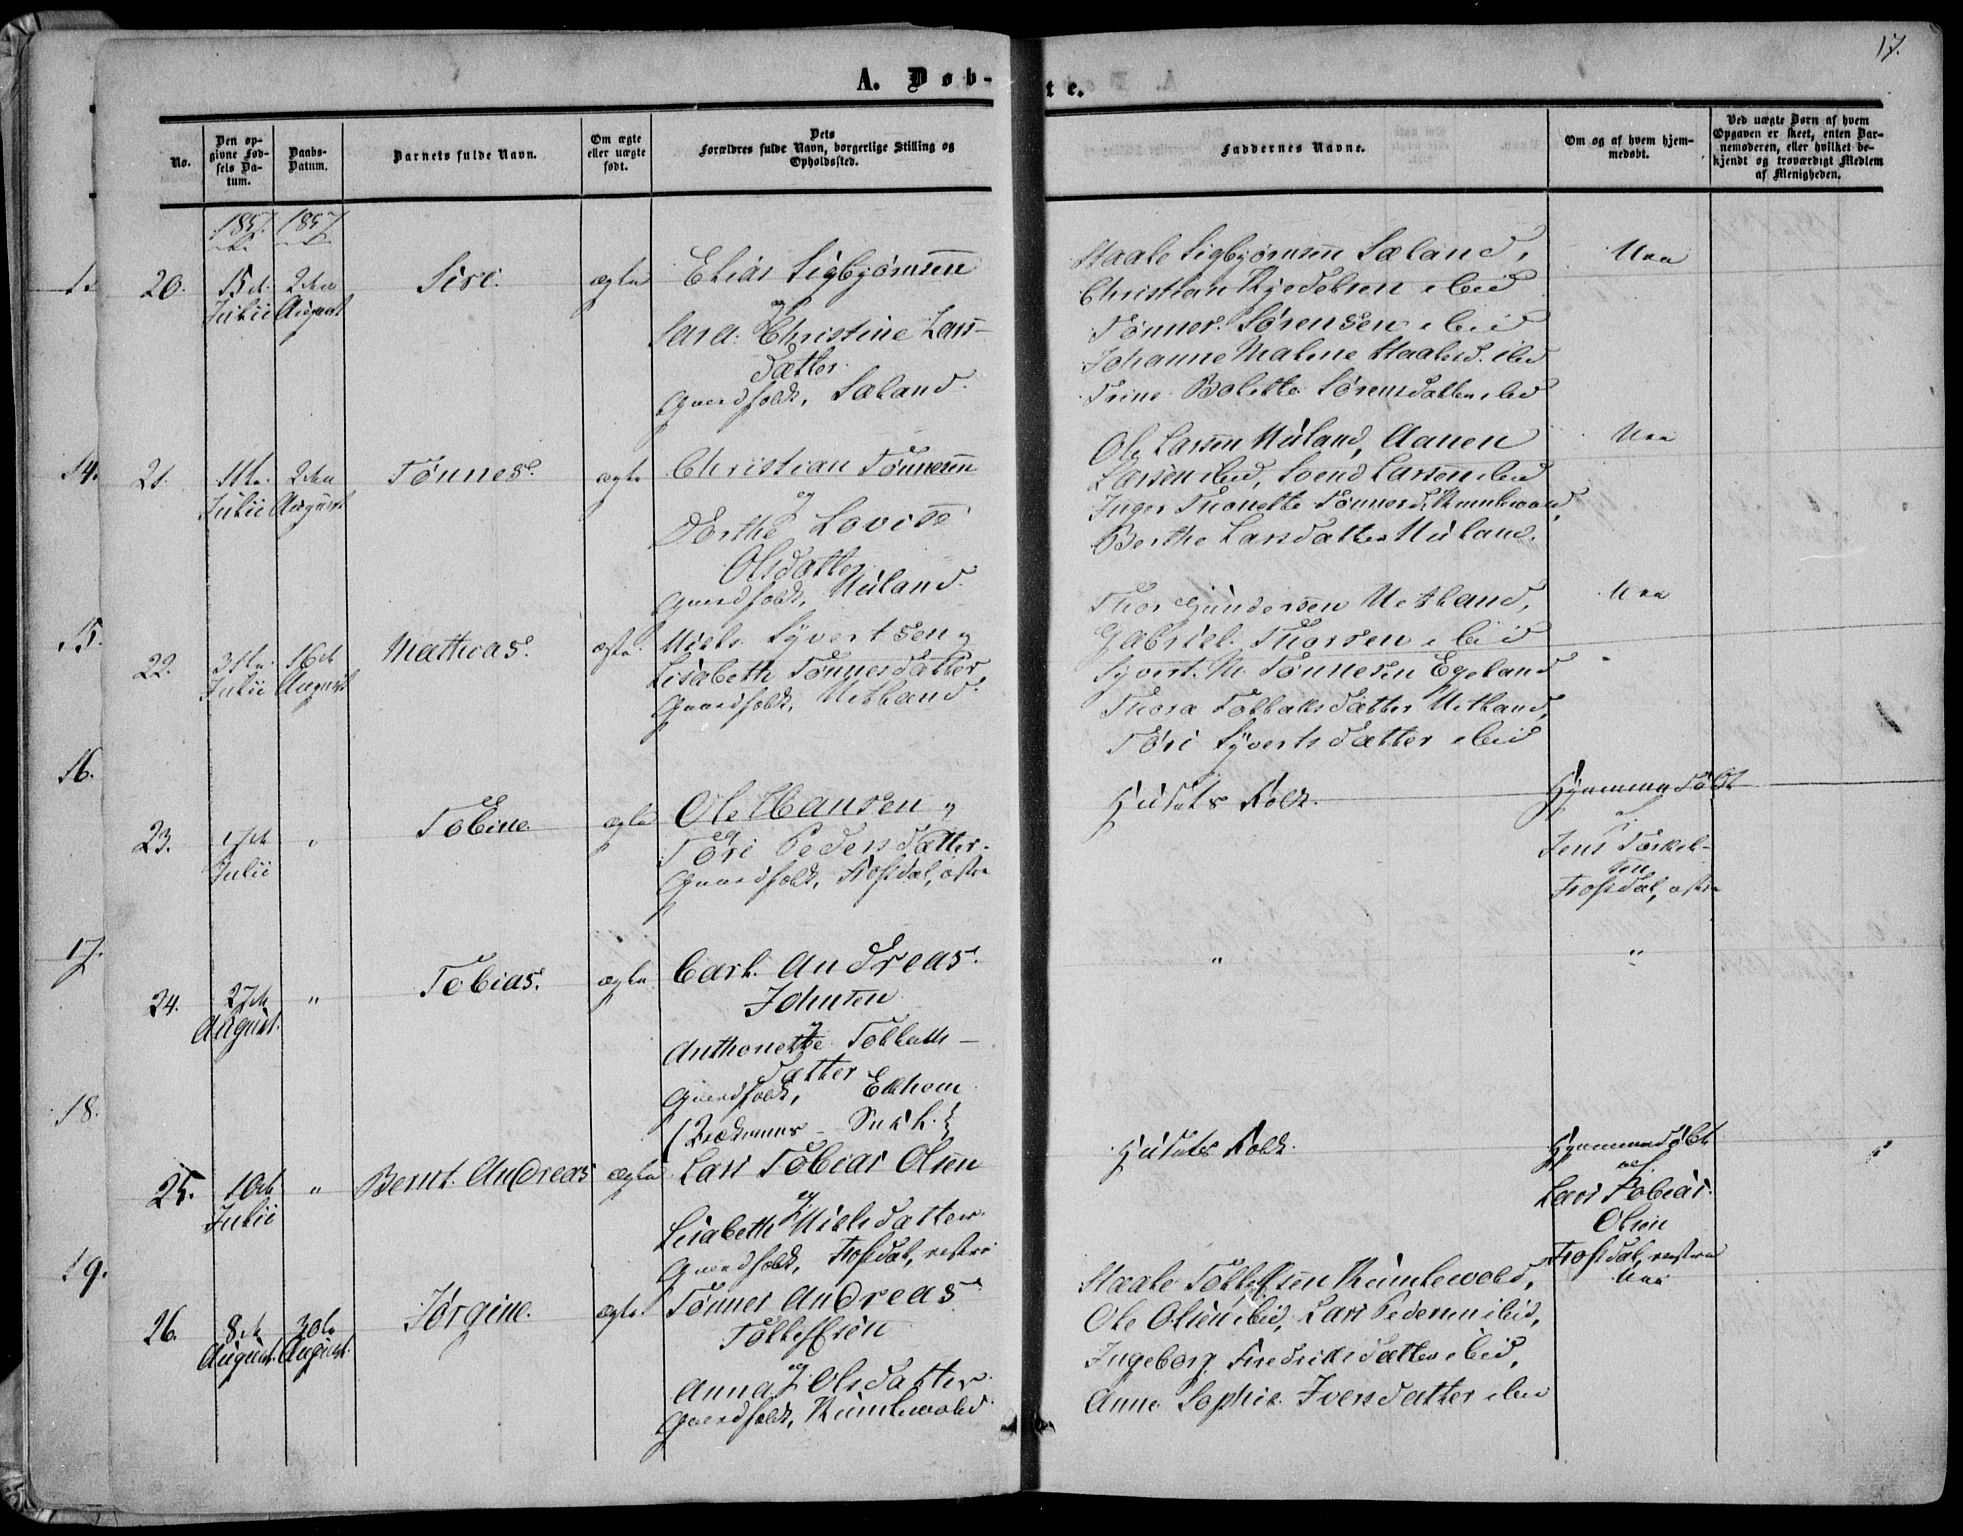 17.
A. Døb-
te.
No.
Den opgivne Fødsels Datum.
Daabs-Datum.
Barnets fulde Navn.
Om ægte eller uægte født.
Dets Forældres fulde Navn, borgerlige Stilling og Opholdssted.
Faddernes Navne.
Om og af hvem hjemmedøbt.
Ved uægte Børn af hvem Opgaven er skeet, enten Barnemoderen, eller hvilket bekjendt og troværdigt Medlem af Menigheden.
1857. 1857
20.
Julii August
Siri.
ægte
Elias Sigbjørnsen
og
Sara Christine Lars-
datter
Gaardfolk, Sæland.
Staale Sigbjørnsen Sæland,
Christian Kjedelsen ibid
Tønnes Sørensen ibid
Johanne Malene Staalesd. ibid
Trine Bolette Sørensdatter ibid
21.
Julii August
Tønnes.
ægte
Christian Tønnesen
og
Dorthe Lovise
Olsdatter
Gaardfolk, Nuland.
Ole Larsen Nuland, Aanen
Larsen ibid, Svend Larsen ibid
Berthe Larsdatter Nuland.
22.
Julii August
Mathias.
ægte
Niels Syvertsen og
Lisabeth Tønnesdatter
Gaardfolk, Netland.
Thor Gundersen Netland,
Gabriel Thorsen ibid
Syvert N. Tønnesen Egeland
Thora Tollaksdatter Netland,
Tøri Syvertsdatter ibid
23.
Julii
"
Tobine
ægte
Ole Hansen
og
Tøri Pedersdatter.
Gaardfolk, Frosdal, østre
Husets Folk.
Hjemmedøbt
af
Jens Torkel-
sen
Frosdal, østre
24.
August.
"
Tobias.
ægte
Carl Andreas
Johnsen
og
Anthonette Tollaks-
datter
Gaardfolk,
"
"
25.
Julii
"
Bernt Andreas
ægte
Lars Tobias Olsen
og
Lisabeth Nielsdatter
Gaardfolk, Frosdal, vestre
Husets Folk.
Hjemmedøbt
af
Lars Tobias
Olsen
Frosdal, vestre
26.
August. August.
Jørgine.
ægte
Tønnes Andreas
Tollefsen
og
Anna Olsdatter
Gaardfolk,
Staale Tollefsen
Ole Olsen ibid, Lars Pedersen ibid,
Ingeborg Fredriksdatter ibid,
Anne Sophie Iversdatter ibid
14.
15.
16.
17.
18.
19.